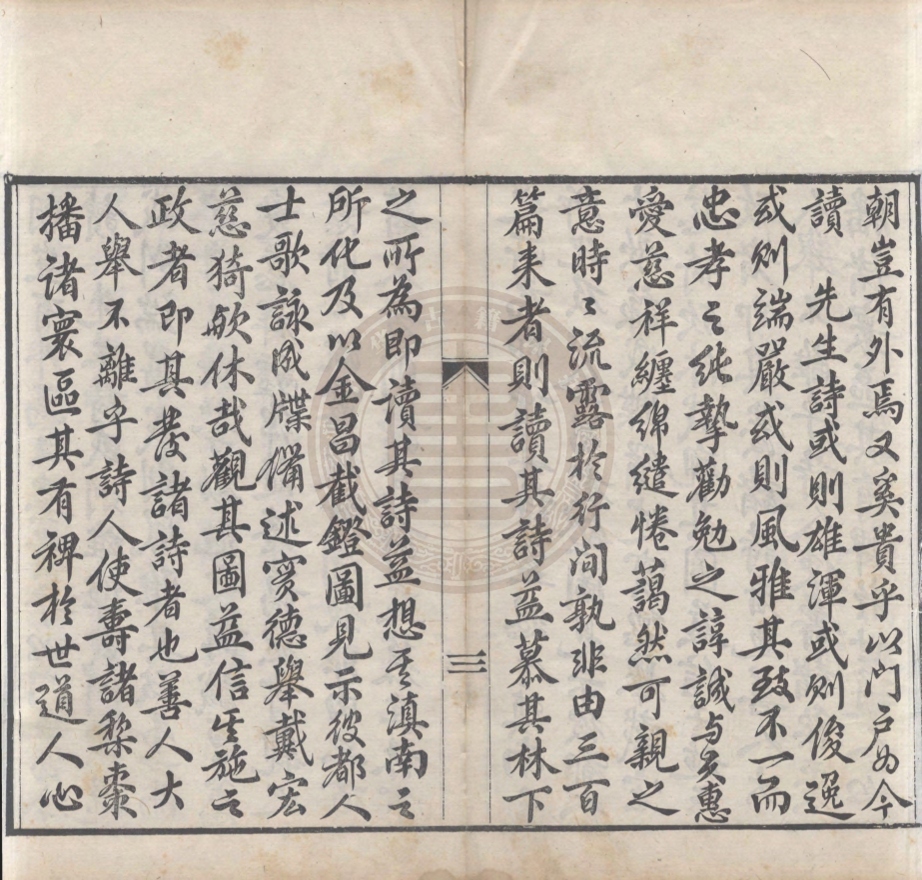 朝豈有外焉又奚貴乎以門戶如今
讀　先生詩或則雄渾或則俊逸
或則端嚴或則風雅其致不一而
忠孝之純摯勸勉之諄誠与夫惠
愛慈祥纏綿繾惓藹然可親之
意時〻流露於行間孰非由三百
篇来者則讀其詩益慕其林下
三
之所為即讀其詩益想其滇南之
所化及以金昌截鐙圖見示彼都人
士歌詠成牒備述實德舉戴宏
慈猗歟休哉觀其圖益信其施之
政者即其發諸詩者也善人大
人舉不離乎詩人使壽諸棃棗
播诸寰區其有裨於世道人心